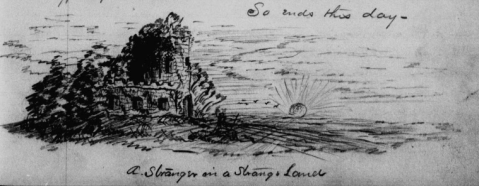 So ends this day -
A Stranger in a Strange Land